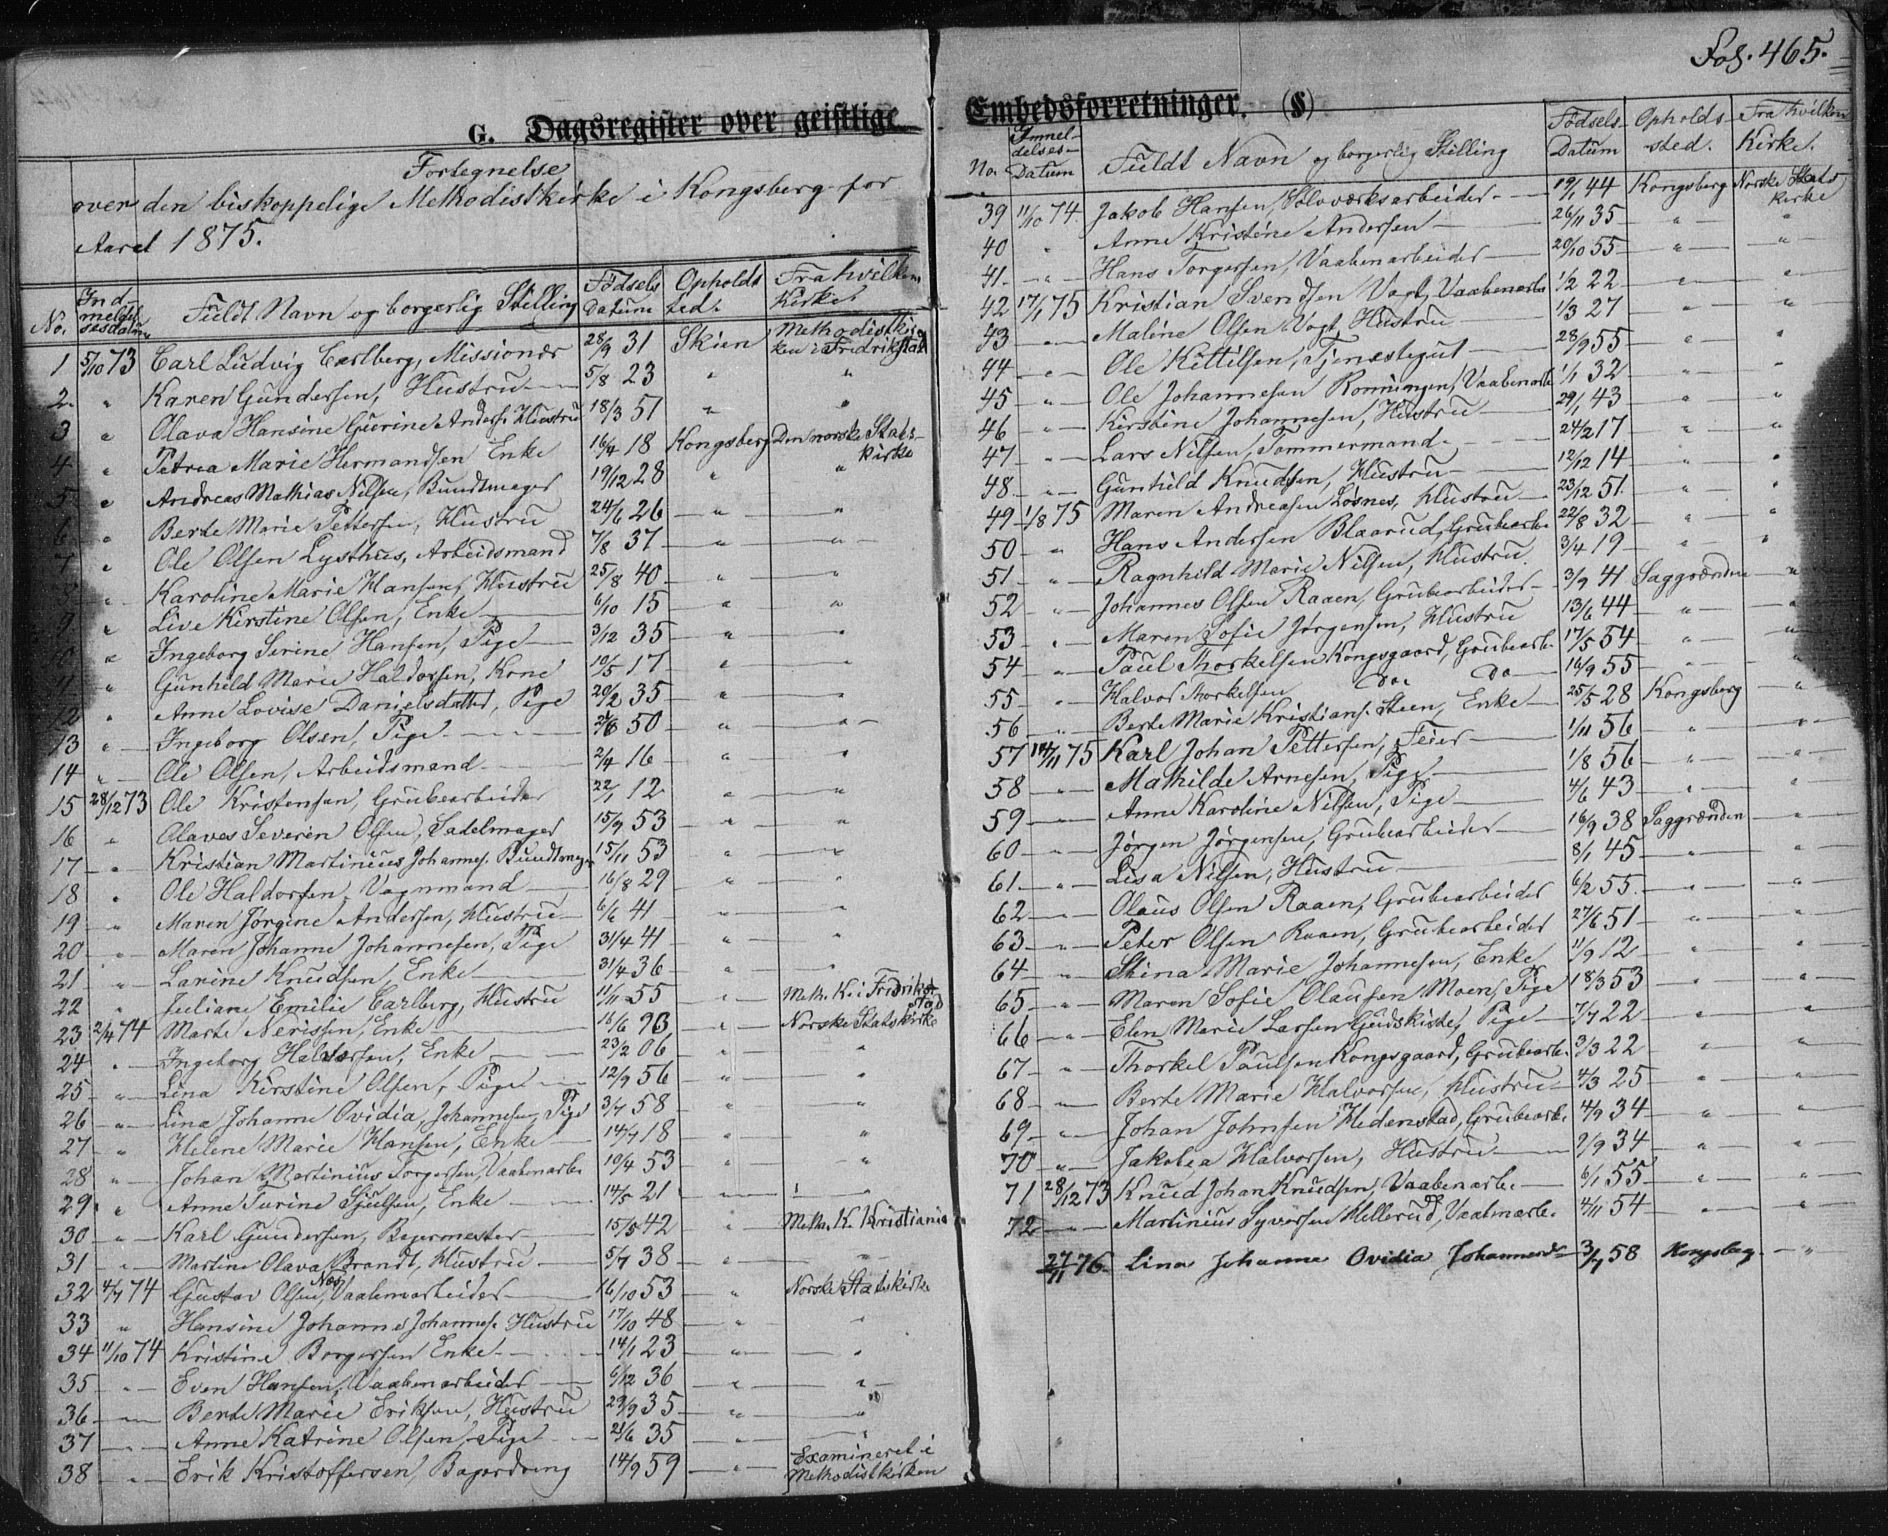 Fol. 465.
G. Dagsregister over geistlige
Embedsforretninger. (S)
Fortegnelse
over den biskoppelige Methodistkirke i Kongsberg for
Aaret 1875.
No. Indmeldelsesdatum Fuldt Navn og borgerlig Stilling Fødsels Datum Opholdsted. Fra hvilken Kirke.
1 5/10 73 Carl Ludvig Carlberg, Missionær 28/9 31 Skien Methodistkirken i Fredrikstad
2 " Karen Gundersen, Hustru 5/8 23 " "
3 " Olava Hansine Gurine Anders. Hustru 18/3 51 " "
4 " Petrea Marie Hermandsen Enke 16/4 18 Kongsberg Den norske Statskirke
5 " Andreas Mathias Nilsen, Bundtmager 19/12 28 " "
6 " Berte Marie Pettersen, Hustru 24/6 26 " "
7 " Ole Olsen Lysthus, Arbeidsmand 7/8 37 " "
8 " Karoline Marie Hansen, Hustru 25/8 40 " "
9 " Live Kirstine Olsen, Enke 6/10 15 " "
10 " Ingeborg Sirine Hansen, Pige 3/12 35 " "
11 " Gunhild Marie Haldorsen, Kone 10/5 17 " "
12 " Anne Lovise Danielsdatter, Pige 20/2 35 " "
13 " Ingeborg Olsen, Pige 50 " "
14 " Ole Olsen, Arbeidsmand 2/4 16 " "
15 28/12 73 Ole Kristensen, Grubearbeider 22/1 12 " "
16 " Olaves Severin Olsen, Sadelmager 15/9 53 " "
17 " Kristian Martinius Johannes. Bundtmager 15/11 53 " "
18 " Ole Haldorsen, Vognmand 16/8 29 " "
19 " Maren Jørgine Andersen, Hustru 6/6 41 " "
20 " Maren Johanne Johannesen, Pige 31/4 41 " "
21 " Larine Knudsen, Enke 31/4 36 " "
22 " Juliane Emilie Carlberg, Hustru 11/11 55 " Meth. K. i Fredrikstad
23 2/4 74 Marte Nerissen, Enke 16/6 93 " Norske Statskirke
24 " Ingeborg Halvorsen, Enke 23/2 06 " "
25 " Lina Kirstine Olsen, Pige 12/9 56 " "
26 " Lina Johanne Ovidia Johannesen, Pige 3/7 58 " "
27 " Helene Marie Hansen, Enke 14/7 18 " "
28 " Johan Martinius Torgersen, Vaabenarbe. 10/4 53 " "
29 " Anne Turine Sjulsen, Enke 14/5 21 " "
30 " Karl Gundersen, Bagermester 15/5 42 " Meth. K. Kristiania
31 " Martine Olava Brandt, Hustru 5/7 38 " "
32 4/7 74 Gustav Olsen Næs, Vaabenarbeider 16/10 53 " Norske Statskirke
33 " Hansine Johanne Johannes. Hustru 17/10 48 " "
34 11/10 74 Kristine Borgersen Enke 14/1 23 " "
35 " Even Hansen, Vaabenarbeider 6/12 36 " "
36 " Berte Marie Eriksen, Hustru 29/9 35 " "
37 " Anne Katrine Olsen, Pige 21/6 35 " "
38 " Erik Kristoffersen, Bagerdreng 14/9 59 " Examineret i Methodistkirken
No. Immeldelses Datum Fuldt Navn og borgerlig Stilling Fødsels Datum Opholdssted. Fra hvilken Kirke.
39 11/10 74. Jakob Hansen, Sølvværksarbeider 19/1 44 Kongsberg Norske Statskirke
40 " Anne Kristine Andersen 26/11 35 " "
41 " Hans Torgersen, Vaabenarbeider 20/10 55 " "
42 17/1 75 Kristian Svendsen Vogt, Vaabenarbe 1/2 22 " "
43 " Maline Olsen Vogt, Hustru 1/3 27 " "
44 " Ole Kittilsen, Tjenestegut 28/9 55 " "
45 " Ole Johannesen Ronningen, Vaabenarbe 1/1 32 " "
46 " Kirstine Johannesen, Hustru 29/1 43 " "
47 " Lars Nilsen, Tommermand 24/2 17 " "
48 " Gunhild Knudsen, Hustru 12/12 14 " "
49 1/8 75 Maren Andreasen Løsnes, Hustru 23/12 51. " "
50 " Hans Andersen Blaarud, Grubearbe. 22/8 32 " "
51 " Ragnhild Marie Nilsen, Hustru 3/4 19 " "
52 " Johannes Olsen Raaen, Grubearbeider 3/9 41 Saggrænden "
53 " Maren Sofie Jørgensen, Hustru 13/6 44 " "
54 " Paul Thorkelsen Kongsgaard, Grubearbe. 17/5 54 " "
55 " Halvor Thorkelsen Do. Do 16/9 55 " "
56 " Berte Marie Kristians. Steen, Enke 25/5 28 Kongsberg "
57 14/11 75 Karl Johan Pettersen, Feier 1/11 56 " "
58 " Mathilde Arnesen, Pige 1/8 56 " "
59 " Anne Karoline Nilsen, Pige 4/6 43 " "
60 " Jørgen Jørgensen, Grubearbeider 16/9 38 Saggrænden "
61 " Lisa Nilsen, Hustru 8/1 45 " "
62 " Olaus Olsen Raaen, Grubearbeider 6/2 55 " "
63 " Peter Olsen Raaen, Grubearbeider 27/6 51 " "
64 " Stina Marie Johannesen, Enke 11/9 12 " "
65 " Maren Sofie Olausen Moen, Pige 18/3 53 " "
66 " Elen Marie Larsen Gudskiste, Pige 7/7 22 " "
67 " Thorkel Paulsen Kongsgaard, Grubearbe. 3/3 22 " "
68 " Berte Marie Halvorsen, Hustru 4/3 25 " "
69 " Johan Johnsen Hedenstad, Grubearbe. 4/9 34 " "
70 " Jakobea Halvorsen, Hustru 9/9 34 " "
71 28/12 73 Knud Johan Knudsen, Vaabenarbe. 6/1 55 " "
72 " Martinius Syversen Hellerud, Vaabenarbe. 4/11 54 " "
27/1 76 Lina Johanne Ovidia Johannesdr 3/7 58 Kongsberg "